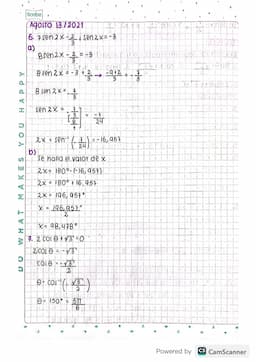 Agosto 13/2021
6. 7 sen 2x - 2/3 ; sen 2x = -3
a)
8 sen 2x - 2/3 = -3
8 sen 2x = -3 + 2/3 → -9+2/3 = -7/3
8 sen 2x = -7/3
sen 2x =
= -7/24
2x = sen⁻¹ (-7/24) = -16,957
b)
Se halla el valor de x
2x = 180° - (-16,957)
2x = 180° + 16,957
2x = 196,957°
x = 196,957°/2
x = 98,478°
7. 2 cos θ + √3 = 0
2 cos θ = -√3
cos θ = -√3/2
θ = cos⁻¹ (-√3/2)
θ = 150° = 5π/6
DO WHAT MAKES YOU HAPPY
Powered by CS CamScanner